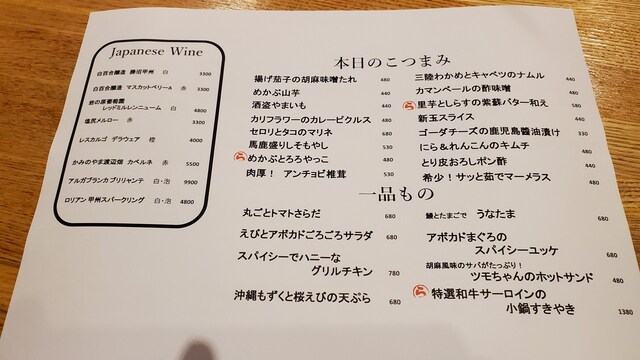 Japanese Wine
白百合醸造 勝沼甲州 白 3300
白百合醸造 マスカットベリーA 赤 3300
岩の原葡萄園
レッドミルレンニューム 白 4800
塩尻メルロー 赤 3300
レスカルゴ デラウェア 橙 4000
かみのやま渡辺畑 カベルネ 赤 5500
アルガブランカブリリャンテ 白・泡 9900
ロリアン 甲州スパークリング 白・泡 4800
本日のこつまみ
揚げ茄子の胡麻味噌たれ 480
めかぶ山芋 440
酒盗やまいも 440
カリフラワーのカレーピクルス 480
セロリとタコのマリネ 680
馬鹿盛りしそもやし 530
ら めかぶとろろやっこ 480
肉厚! アンチョビ椎茸 530
三陸わかめとキャベツのナムル 440
カマンベールの酢味噌 480
ら 里芋としらすの紫蘇バター和え 580
新玉スライス 440
ゴーダチーズの鹿児島醤油漬け 330
にら&れんこんのキムチ 480
とり皮おろしポン酢 440
希少!サッと茹でマーメラス 480
一品もの
丸ごとトマトさらだ 680
えびとアボカドごろごろサラダ 680
スパイシーでハニーな
グリルチキン 780
沖縄もずくと桜えびの天ぷら 680
鰻とたまごで うなたま 680
アボカドまぐろの
スパイシーユッケ 680
胡麻風味のサバがたっぷり!
ツモちゃんのホットサンド 480
ら 特選和牛サーロインの
小鍋すきやき 1380